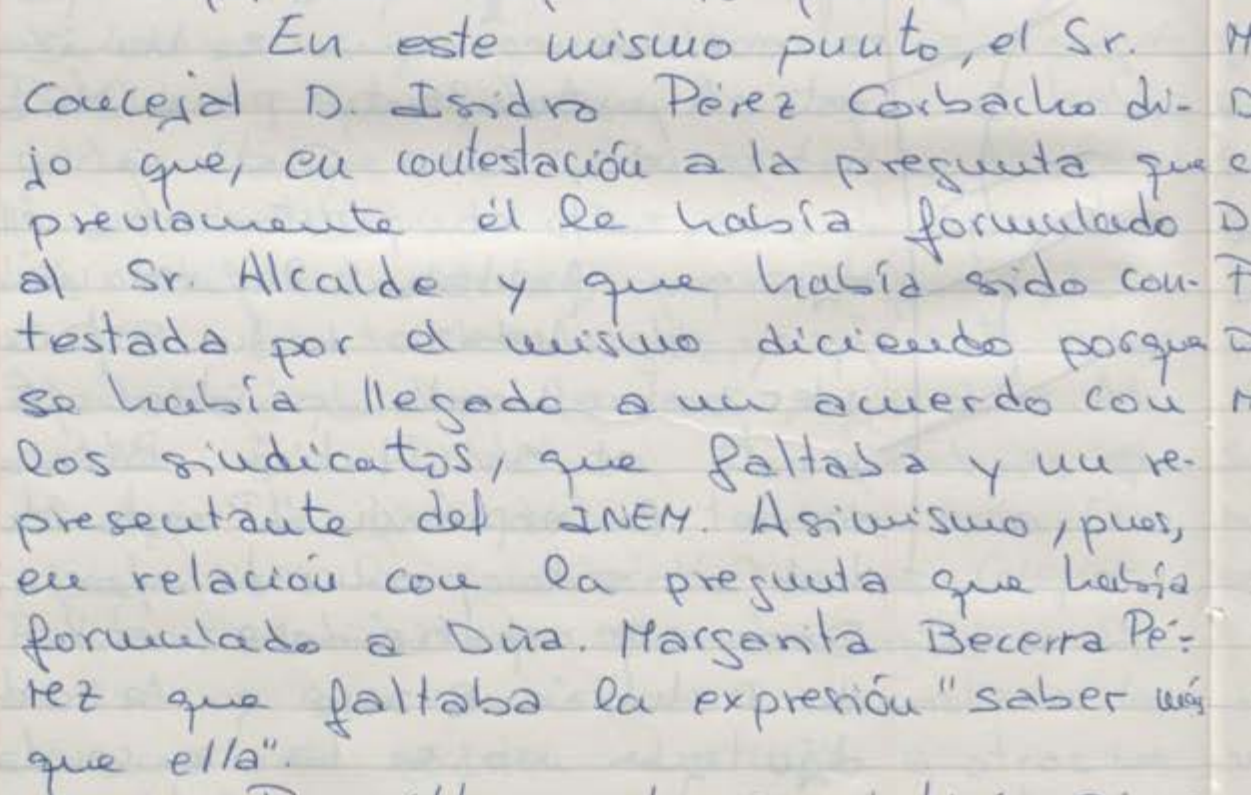 En este mismo punto, el Sr.
Concejal D. Isidro Pérez Corbacho di-
jo que, en contestación a la pregunta que
previamente él le había formulado
al Sr. Alcalde y que había sido con-
testada por el mismo diciendo porque
se había llegado a un acuerdo con
los sindicatos, que faltaba y un re-
presentante del INEM. Asimismo, pues,
en relación con la pregunta que había
formulado a Dña. Margarita Becerra Pé-
rez que faltaba la expresión "saber más
que ella".